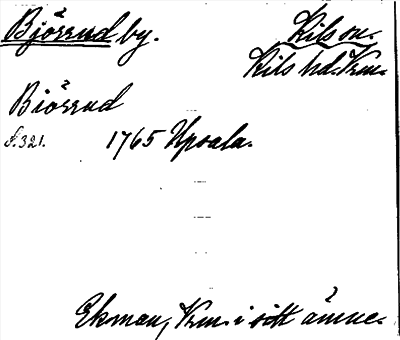 Björrud by. Kils sn.
Kils hd. Vrm.
Biörrud
s. 321. 1765 Upsala.
Ekman, Vrm. i sitt ämne.